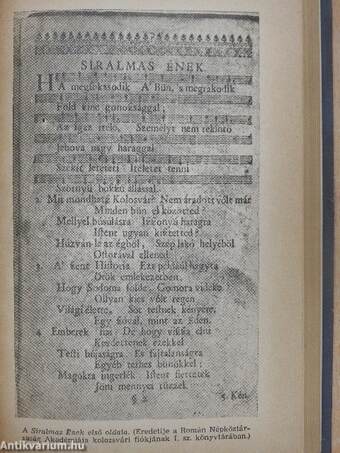 SIRALMAS ÉNEK
HA megsokasodik A' Bün, s megrakodik
Föld színe gonoszsággal;
Az igaz itelö, Személyt nem tekintö
Jehova nagy haraggal
Székit letéteti Itéletet tenni
Szörnyü bokkú állással.
2. Mit mondhatz Kolosvár? Nem áradott vólt már
Minden bün el közötted?
Mellyel búsúlásra Iszonyú haragra
Istent ugyan kisztetted?
Húzván le az égböl, Szép lakó helyéböl
Ostorával ellened
3. A' szent Historia Ezt példáúl hagyta
Örök emlekezetben.
Hogy Sodoma földe, Gomora vidéke
Ollyan kies vólt régen
Világi élette, Sót testnek kényére,
Egy szóval, mint az Éden.
4. Emberek hát De hogy vissza élni
Kezdettenek ezekkel
Testi bújaságra És fajtalanságra
Egyéb terhes bünökkel;
Magokra ingerlék Istent siettették
Jöni mennyei tüzzel
§ 2
5. Kén
A Siralmas Ének első oldala. (Eredetije a Román Népköztár-
saság Akadémiája kolozsvári fiókjának I. sz. könyvtárában.)
Antikvarium.hu